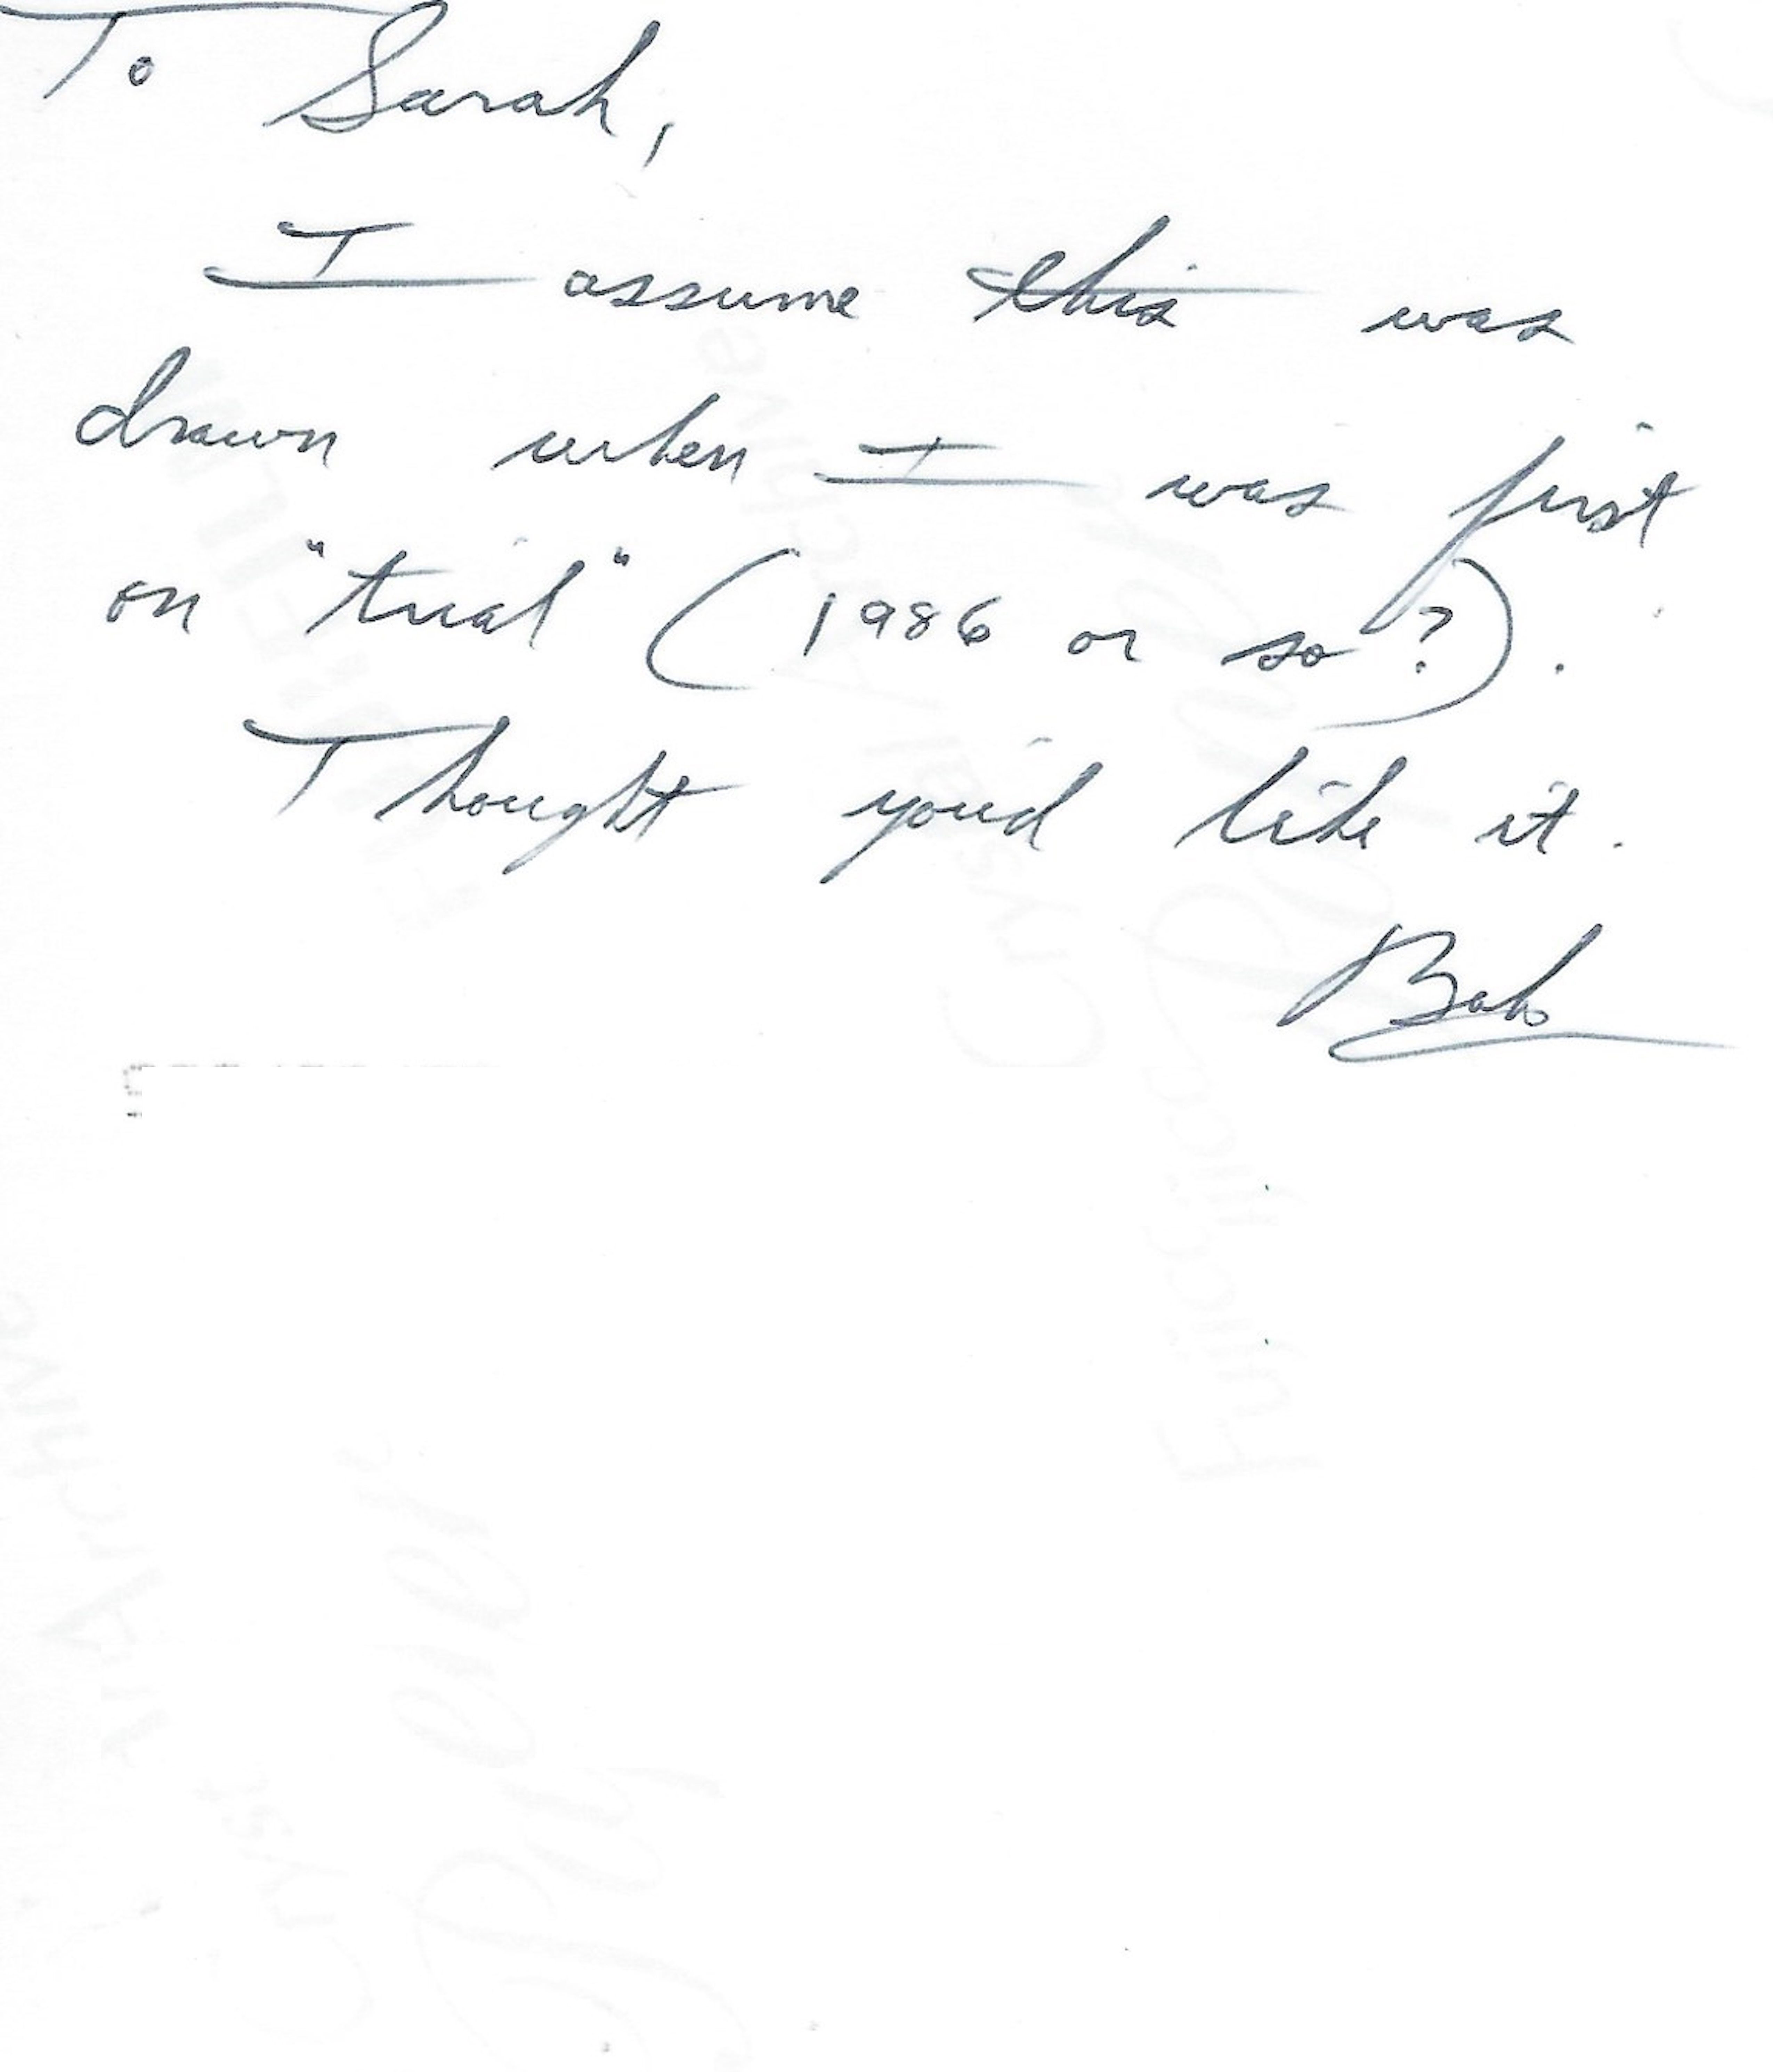 To Sarah,
I assume this was
drawn when I was first
on "trial" (1986 or so?).
Thought you'd like it.
Bob